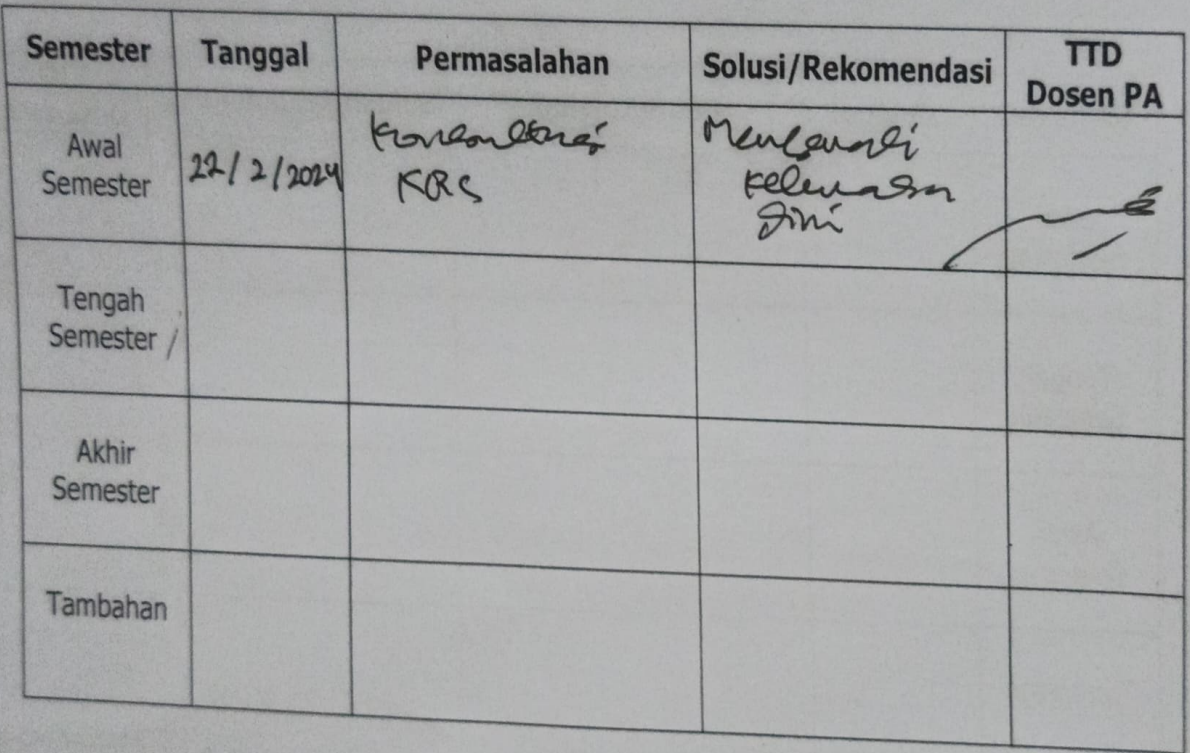 Semester Tanggal Permasalahan Solusi/Rekomendasi TTD
Dosen PA
Awal
Semester
22/2/2024
Konsultasi
KRS
Tengah
Semester
Akhir
Semester
Tambahan